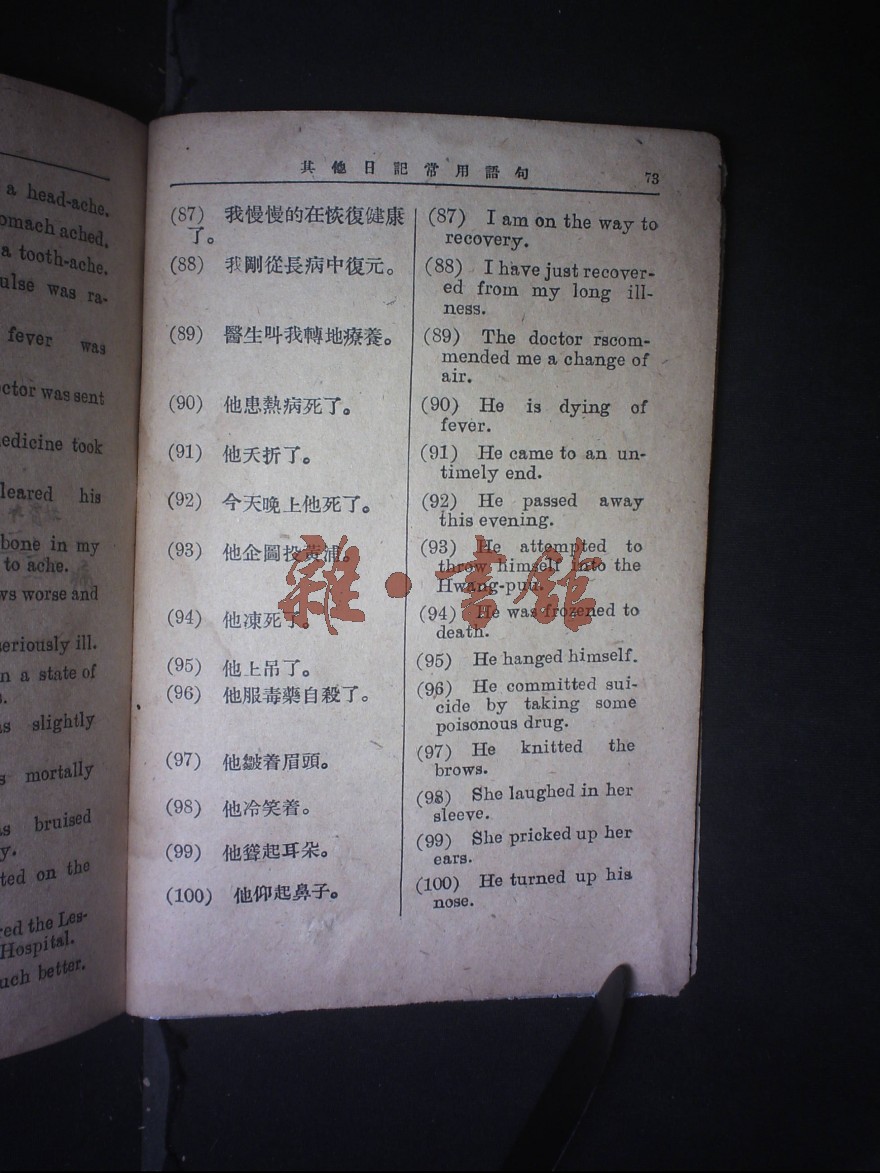 a head-ache.
omach ached.
a tooth-ache.
ulse was ra-
fever was
ctor was sent
edicine took
leared his
bone in my
to ache.
ws worse and
seriously ill.
n a state of
as slightly
s mortally
as bruised
y.
ted on the
red the Les-
Hospital.
uch better.
其他日記常用語句 73
(87) 我慢慢的在恢復健康
了。
(88) 我剛從長病中復元。
(89) 醫生叫我轉地療養。
(90) 他患熱病死了。
(91) 他夭折了。
(92) 今天晚上他死了。
(93) 他企圖投黃浦。
(94) 他凍死了。
(95) 他上吊了。
(96) 他服毒藥自殺了。
(97) 他皺着眉頭。
(98) 他冷笑着。
(99) 他聳起耳朵。
(100) 他仰起鼻子。
(87) I am on the way to
recovery.
(88) I have just recover-
ed from my long ill-
ness.
(89) The doctor rscom-
mended me a change of
air.
(90) He is dying of
fever.
(91) He came to an un-
timely end.
(92) He passed away
this evening.
(93) He attempted to
throw himself into the
Hwang-puu.
(94) He was frozened to
death.
(95) He hanged himself.
(96) He committed sui-
cide by taking some
poisonous drug.
(97) He knitted the
brows.
(98) She laughed in her
sleeve.
(99) She pricked up her
ears.
(100) He turned up his
nose.
雜·書館